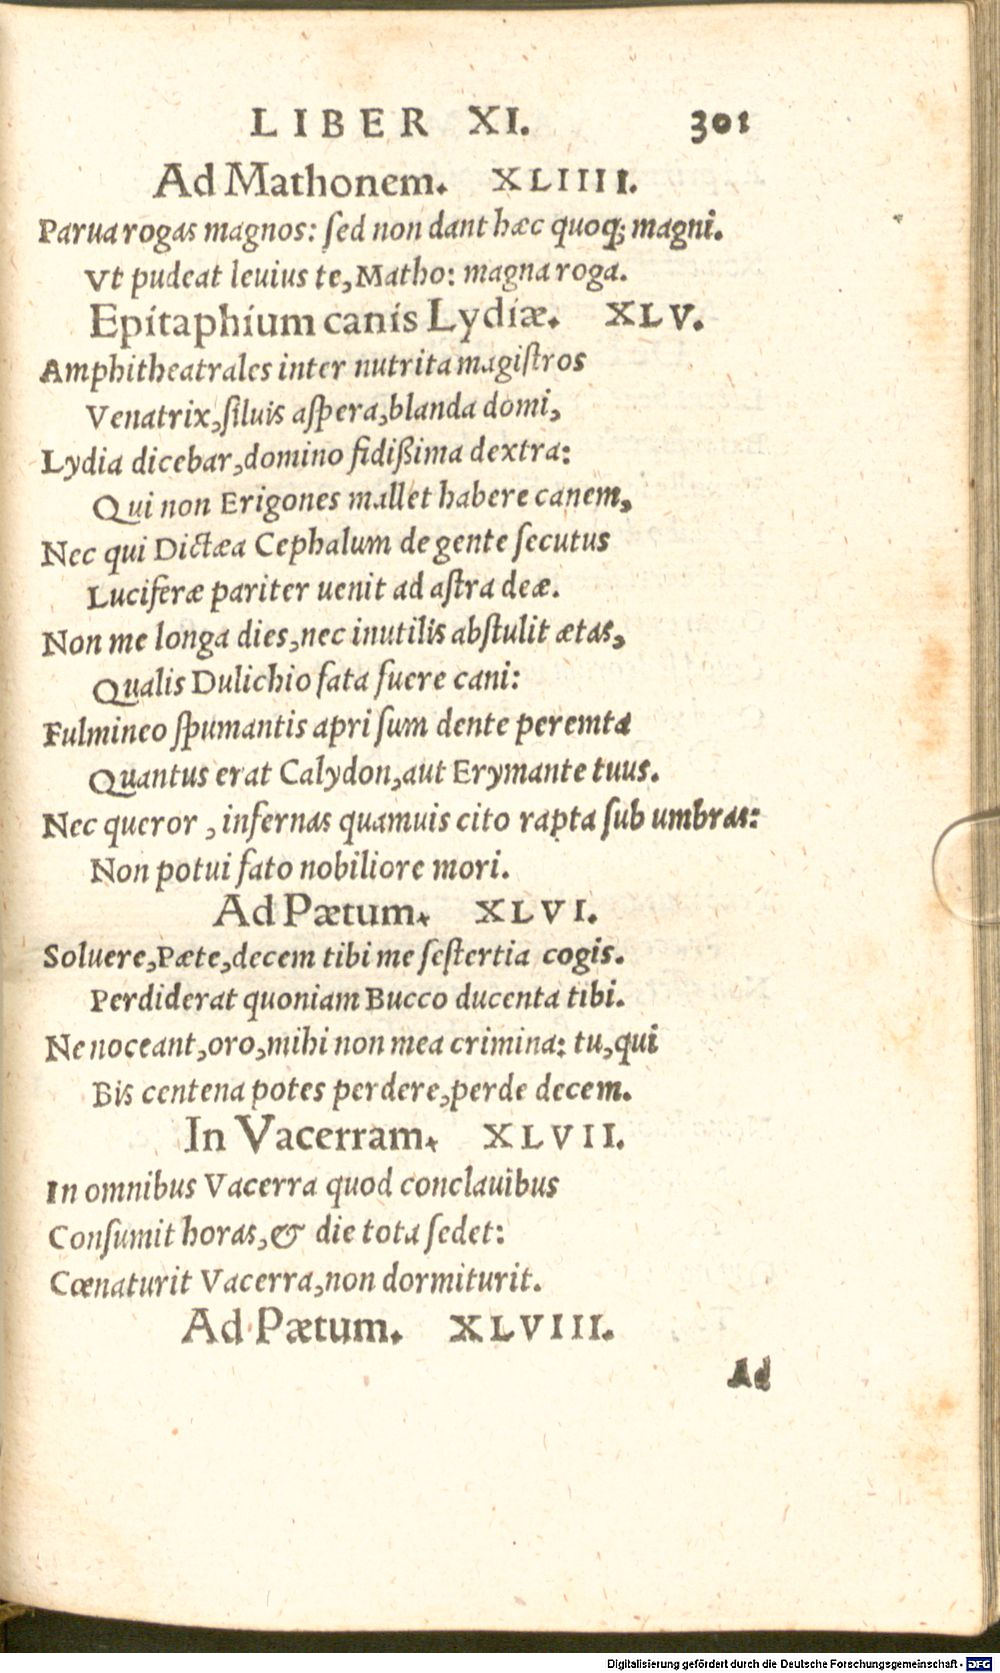 LIBER XI. 301
Ad Mathonem. XLIIII.
Parua rogas magnos: ſed non dant hæc quoq; magni.
Vt pudeat leuius te, Matho: magna roga.
Epitaphium canis Lydiæ. XLV.
Amphitheatrales inter nutrita magiſtros
Venatrix, ſiluis aſpera, blanda domi,
Lydia dicebar, domino fidißima dextra:
Qui non Erigones mallet habere canem,
Nec qui Dictæa Cephalum de gente ſecutus
Luciferæ pariter uenit ad aſtra deæ.
Non me longa dies, nec inutilis abſtulit ætas,
Qualis Dulichio fata fuere cani:
Fulmineo ſpumantis apri ſum dente peremta
Quantus erat Calydon, aut Erymante tuus.
Nec queror, infernas quamuis cito rapta ſub umbras:
Non potui fato nobiliore mori.
Ad Pætum. XLVI.
Soluere, Pæte, decem tibi me ſeſtertia cogis.
Perdiderat quoniam Bucco ducenta tibi.
Ne noceant, oro, mihi non mea crimina: tu, qui
Bis centena potes perdere, perde decem.
In Vacerram. XLVII.
In omnibus Vacerra quod conclauibus
Conſumit horas, & die tota ſedet:
Cœnaturit Vacerra, non dormiturit.
Ad Pætum. XLVIII.
Ad
Digitalisierung gefördert durch die Deutsche Forschungsgemeinschaft - DFG